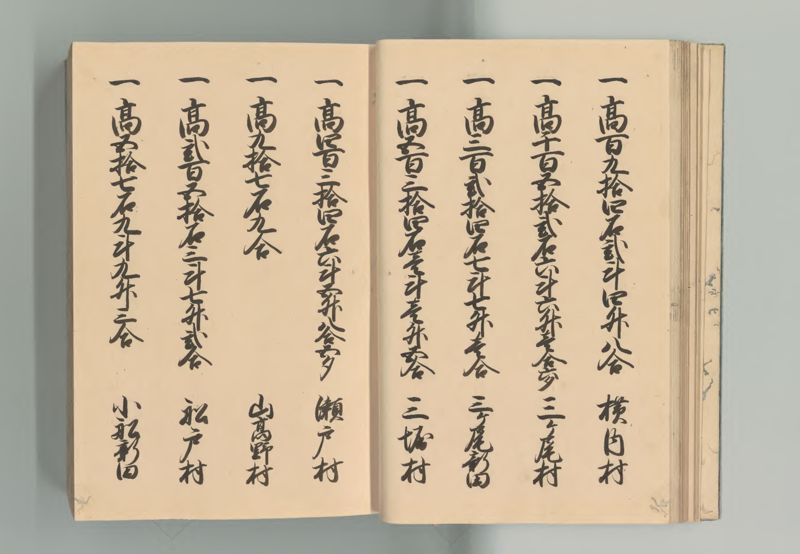 一 高百九拾四石弐斗四升八合 横内村
一 高千百五拾弐石六斗六升壱合 三ヶ尾村
一 高二百弐拾四石七斗七升壱合 三ヶ尾新田
一 高五百三拾四石壱斗壱升五合 三堀村
一 高四百三拾四石六斗五升八合五夕 瀬戸村
一 高九拾七石九合 山高野村
一 高弐百五拾石三斗七升弐合 舩戸村
一 高五拾七石九斗九升三合 小舩新田